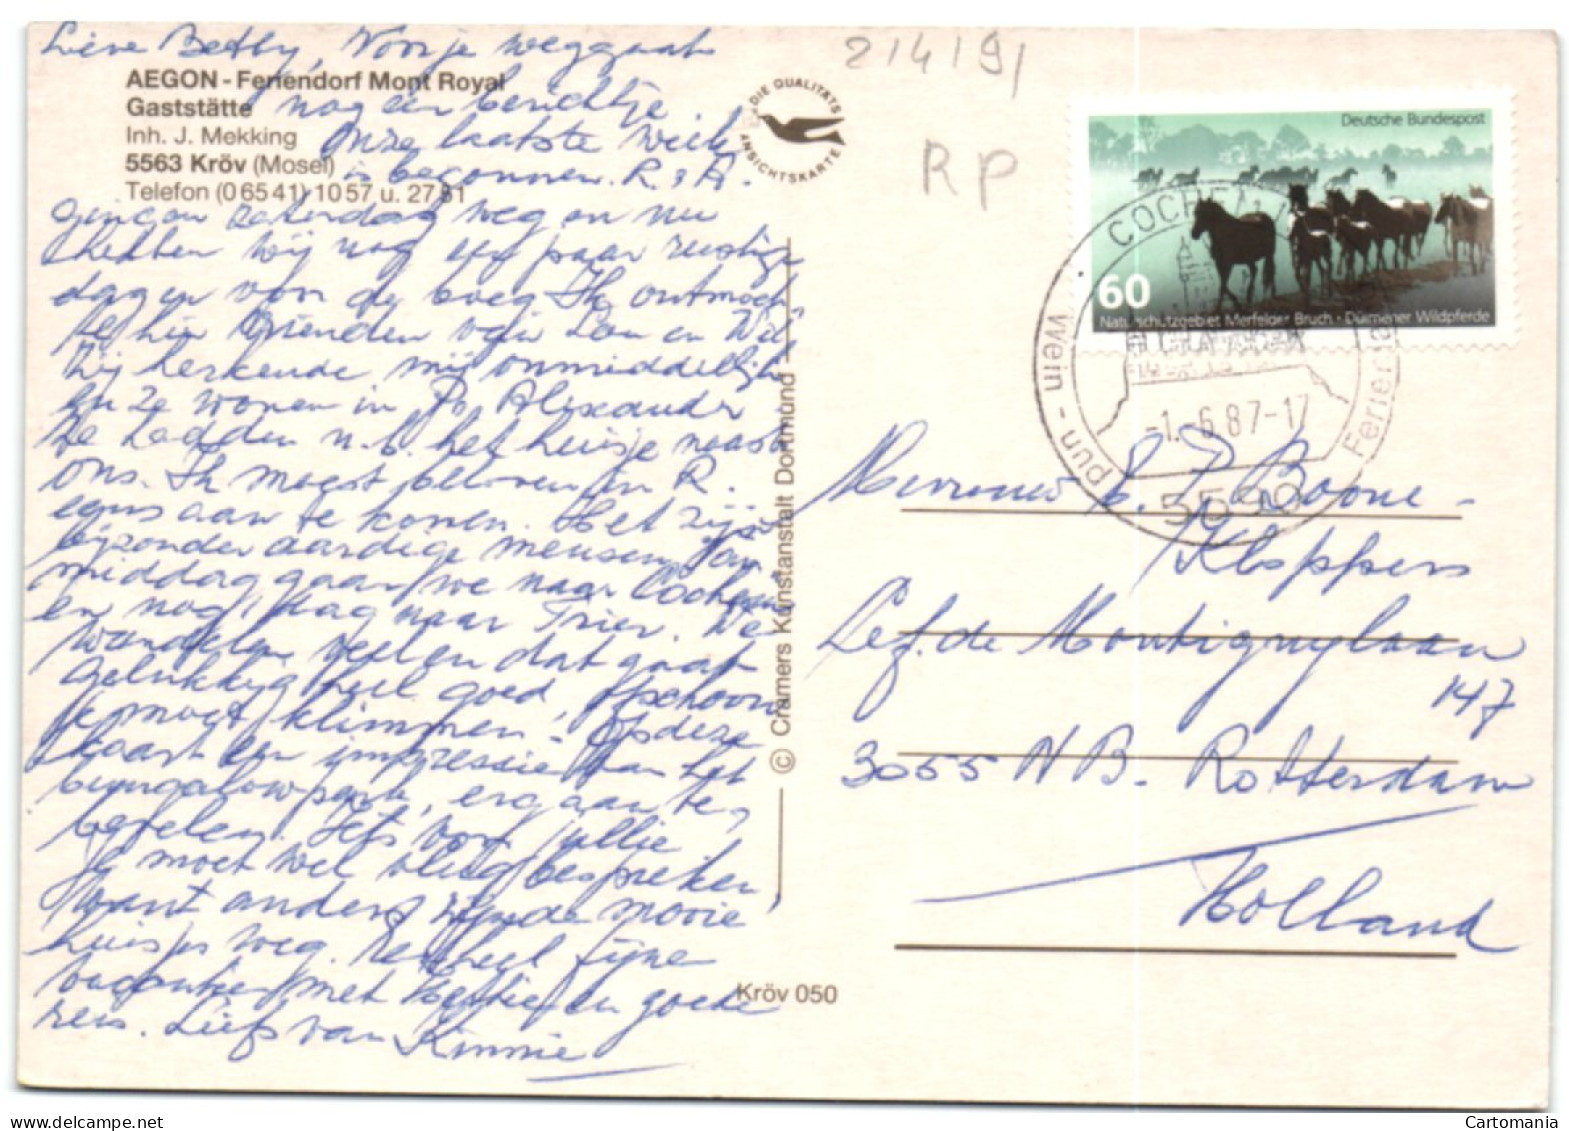 Lieve Betty, Voor je weggaat
nog een berichtje
Onze laatste week
is begonnen. R & A.
gingen zaterdag weg en nu
hebben wij nog een paar rustige
dagen voor de boeg. Ik ontmoet-
te hier vrienden van Lou en Wil
Zij herkende mij onmiddellijk
en ze wonen in Pr. Alexander
Ze hadden n.b. het huisje naast
ons. Ik moest beloven in R.
eens aan te komen. Het zijn
bijzonder aardige mensen. Van
middag gaan we naar Cochem
en nog 1 dag naar Trier. We
wandelen veel en dat gaat
gelukkig heel goed, ofschoon
je moet klimmen. Op deze
kaart een impressie van het
bungalowpark,
Iets voor jullie
Je moet wel vlug bespreken
want anders zijn de mooie
huisjes weg. Verder heel fijne
vacantie met en goede
reis. Liefs van Rinnie
AEGON - Feriendorf Mont Royal
Gaststätte
Inh. J. Mekking
5563 Kröv (Mosel)
Telefon (0 65 41) 10 57 u. 27 81
DIE QUALITÄTS
ANSICHTSKARTE
© Cramers Kunstanstalt Dortmund
Kröv 050
21419/
RP
Deutsche Bundespost
60
Naturschutzgebiet Merfelder Bruch · Dülmener Wildpferde
COCHEM
Wein - und
Ferien
-1.-6.87-17
5590
Mevrouw B. P. Boone-
Kloppers
Lef. de Montignylaan
147
3055 NB. Rotterdam
Holland
Cartomania